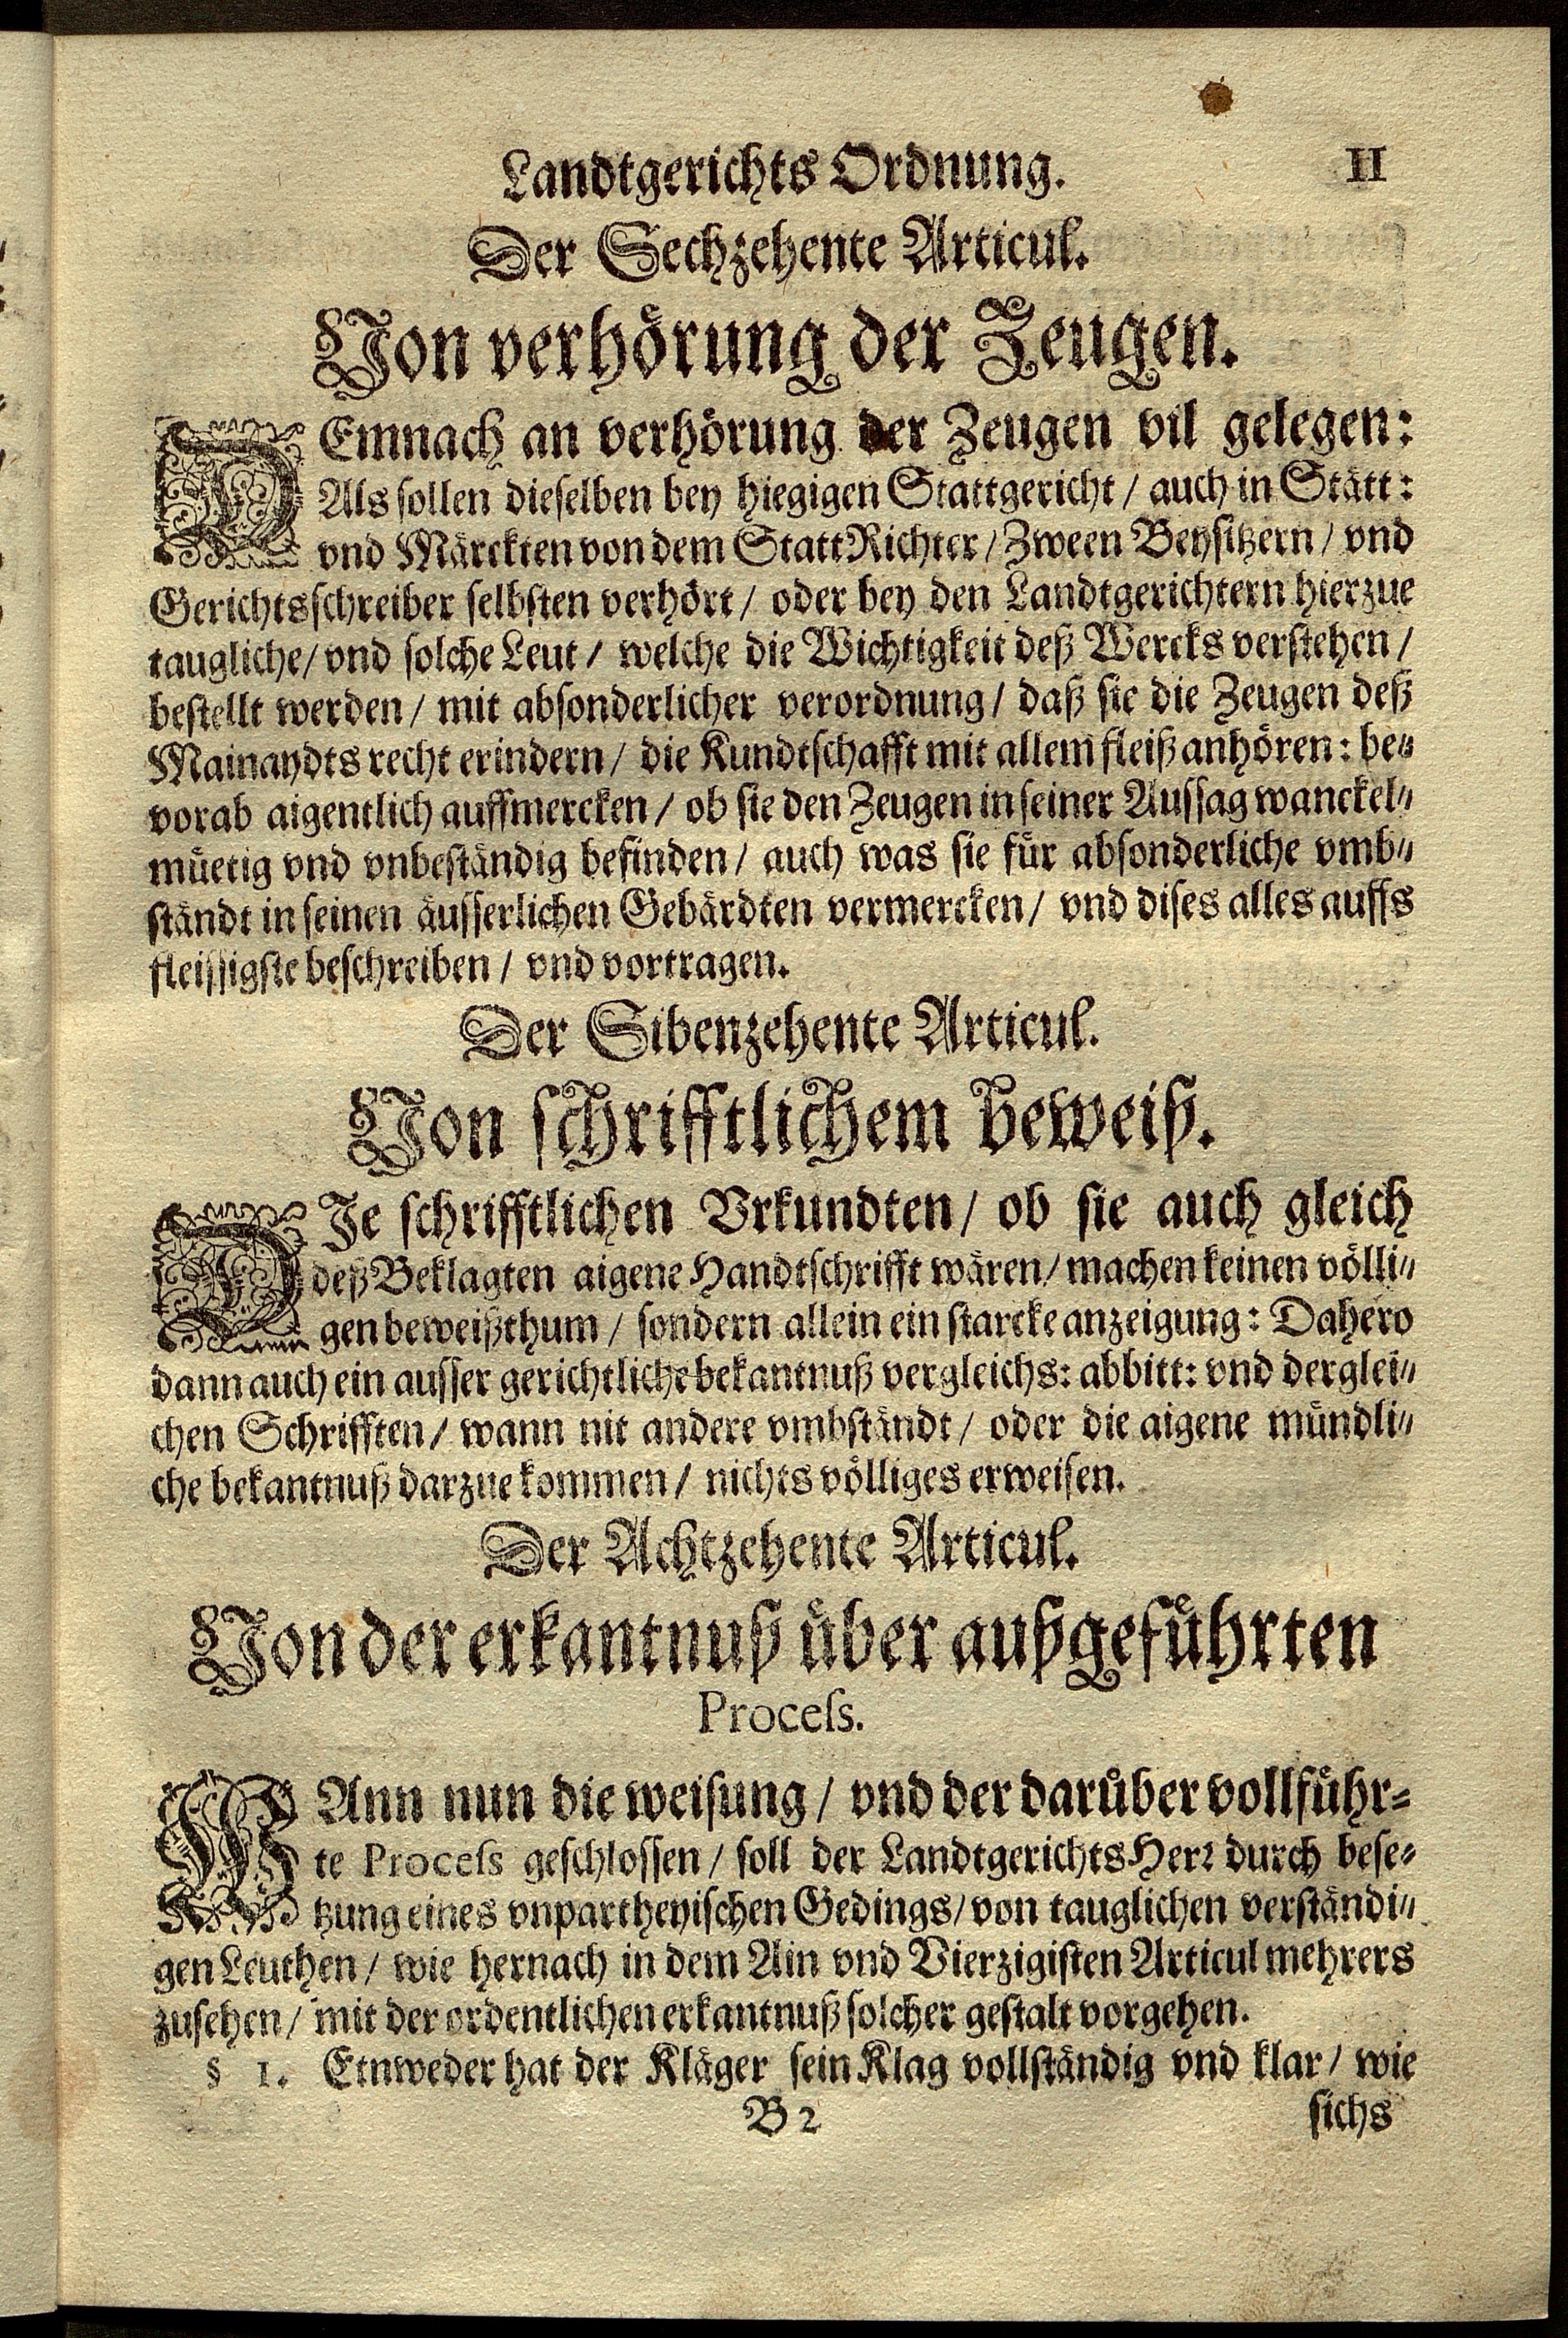 Landtgerichts Ordnung. 11
Der Sechzehente Articul.
Von verhörung der Zeugen.
DEmnach an verhörung der Zeugen vil gelegen:
Als sollen dieselben bey hiegigen Stattgericht / auch in Stätt:
vnd Märckten von dem StattRichter / Zween Beysitzern / vnd
Gerichtsschreiber selbsten verhört / oder bey den Landtgerichtern hierzue
taugliche / vnd solche Leut / welche die Wichtigkeit deß Wercks verstehen /
bestellt werden / mit absonderlicher verordnung / daß sie die Zeugen deß
Mainaydts recht erindern / die Kundtschafft mit allem fleiß anhören: be⸗
vorab aigentlich auffmercken / ob sie den Zeugen in seiner Aussag wanckel⸗
müetig vnd vnbeständig befinden / auch was sie für absonderliche vmb⸗
ständt in seinen äusserlichen Gebärdten vermercken / vnd dises alles auffs
fleissigste beschreiben / vnd vortragen.
Der Sibenzehente Articul.
Von schrifftlichem beweiß.
DIe schrifftlichen Vrkundten / ob sie auch gleich
deß Beklagten aigene Handtschrifft wären / machen keinen völli⸗
gen beweißthum / sondern allein ein starcke anzeigung: Dahero
dann auch ein ausser gerichtliche bekantnuß vergleichs: abbitt: vnd derglei⸗
chen Schrifften / wann nit andere vmbständt / oder die aigene mündli⸗
che bekantnuß darzue kommen / nichts völliges erweisen.
Der Achtzehente Articul.
Von der erkantnuß über außgeführten
Process.
WAnn nun die weisung / vnd der darüber vollführ⸗
te Process geschlossen / soll der LandtgerichtsHerr durch bese⸗
tzung eines vnpartheyischen Gedings / von tauglichen verständi⸗
gen Leuthen / wie hernach in dem Ain vnd Vierzigisten Articul mehrers
zusehen / mit der ordentlichen erkantnuß solcher gestalt vorgehen.
§ 1. Etnweder hat der Kläger sein Klag vollständig vnd klar / wie
B 2 sichs